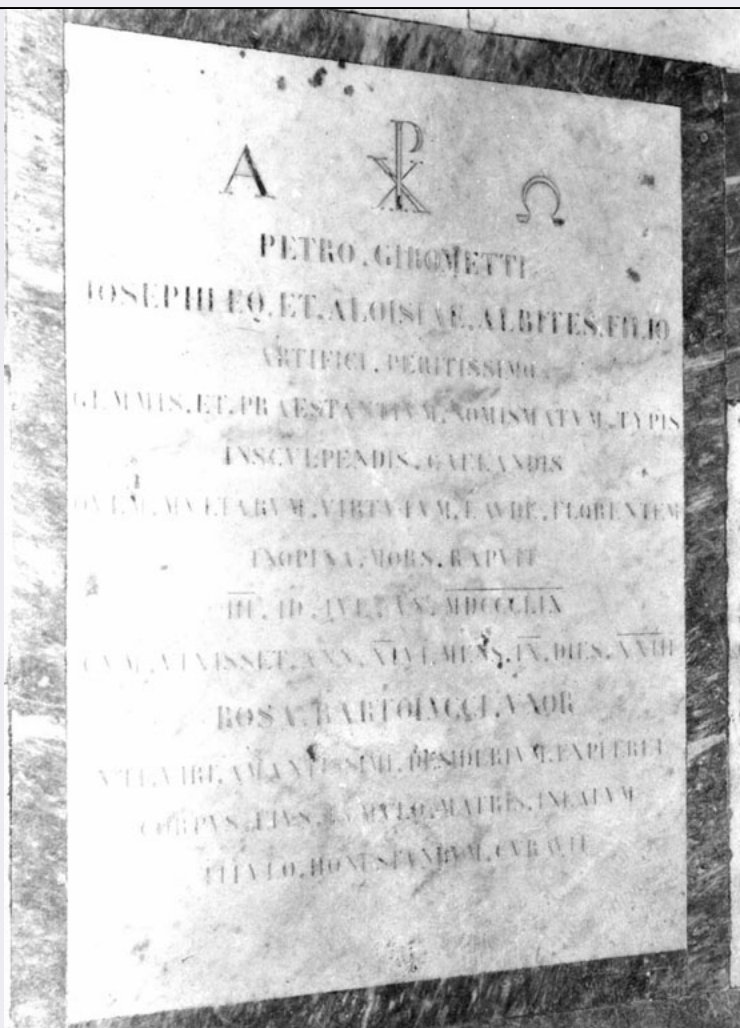 Α ☧ Ω
PETRO . GIROMETTI
IOSEPHI EQ . ET . ALOISIAE . ALBITES . FILIO
ARTIFICI . PERITISSIMO
GEMMIS . ET . PRAESTANTIVM . NOMISMATVM . TYPIS
INSCVLPENDIS . CAELANDIS
QVEM . MVLTARVM . VIRTVTVM . LAVDE . FLORENTEM
INOPINA . MORS . RAPVIT
III . ID . IVL . AN . MDCCCLIX
CVM . VIXISSET . ANN . MENS . IX . DIES . XXIII
ROSA . BARTOLVCCI . VXOR
VTI . VIRI . AMANTISSIMI . DESIDERIVM . EXPLERET
CORPVS . EIVS . TVMVLO . MATRIS . INLATVM
TITVLO . HONESTANDVM . CVRAVIT